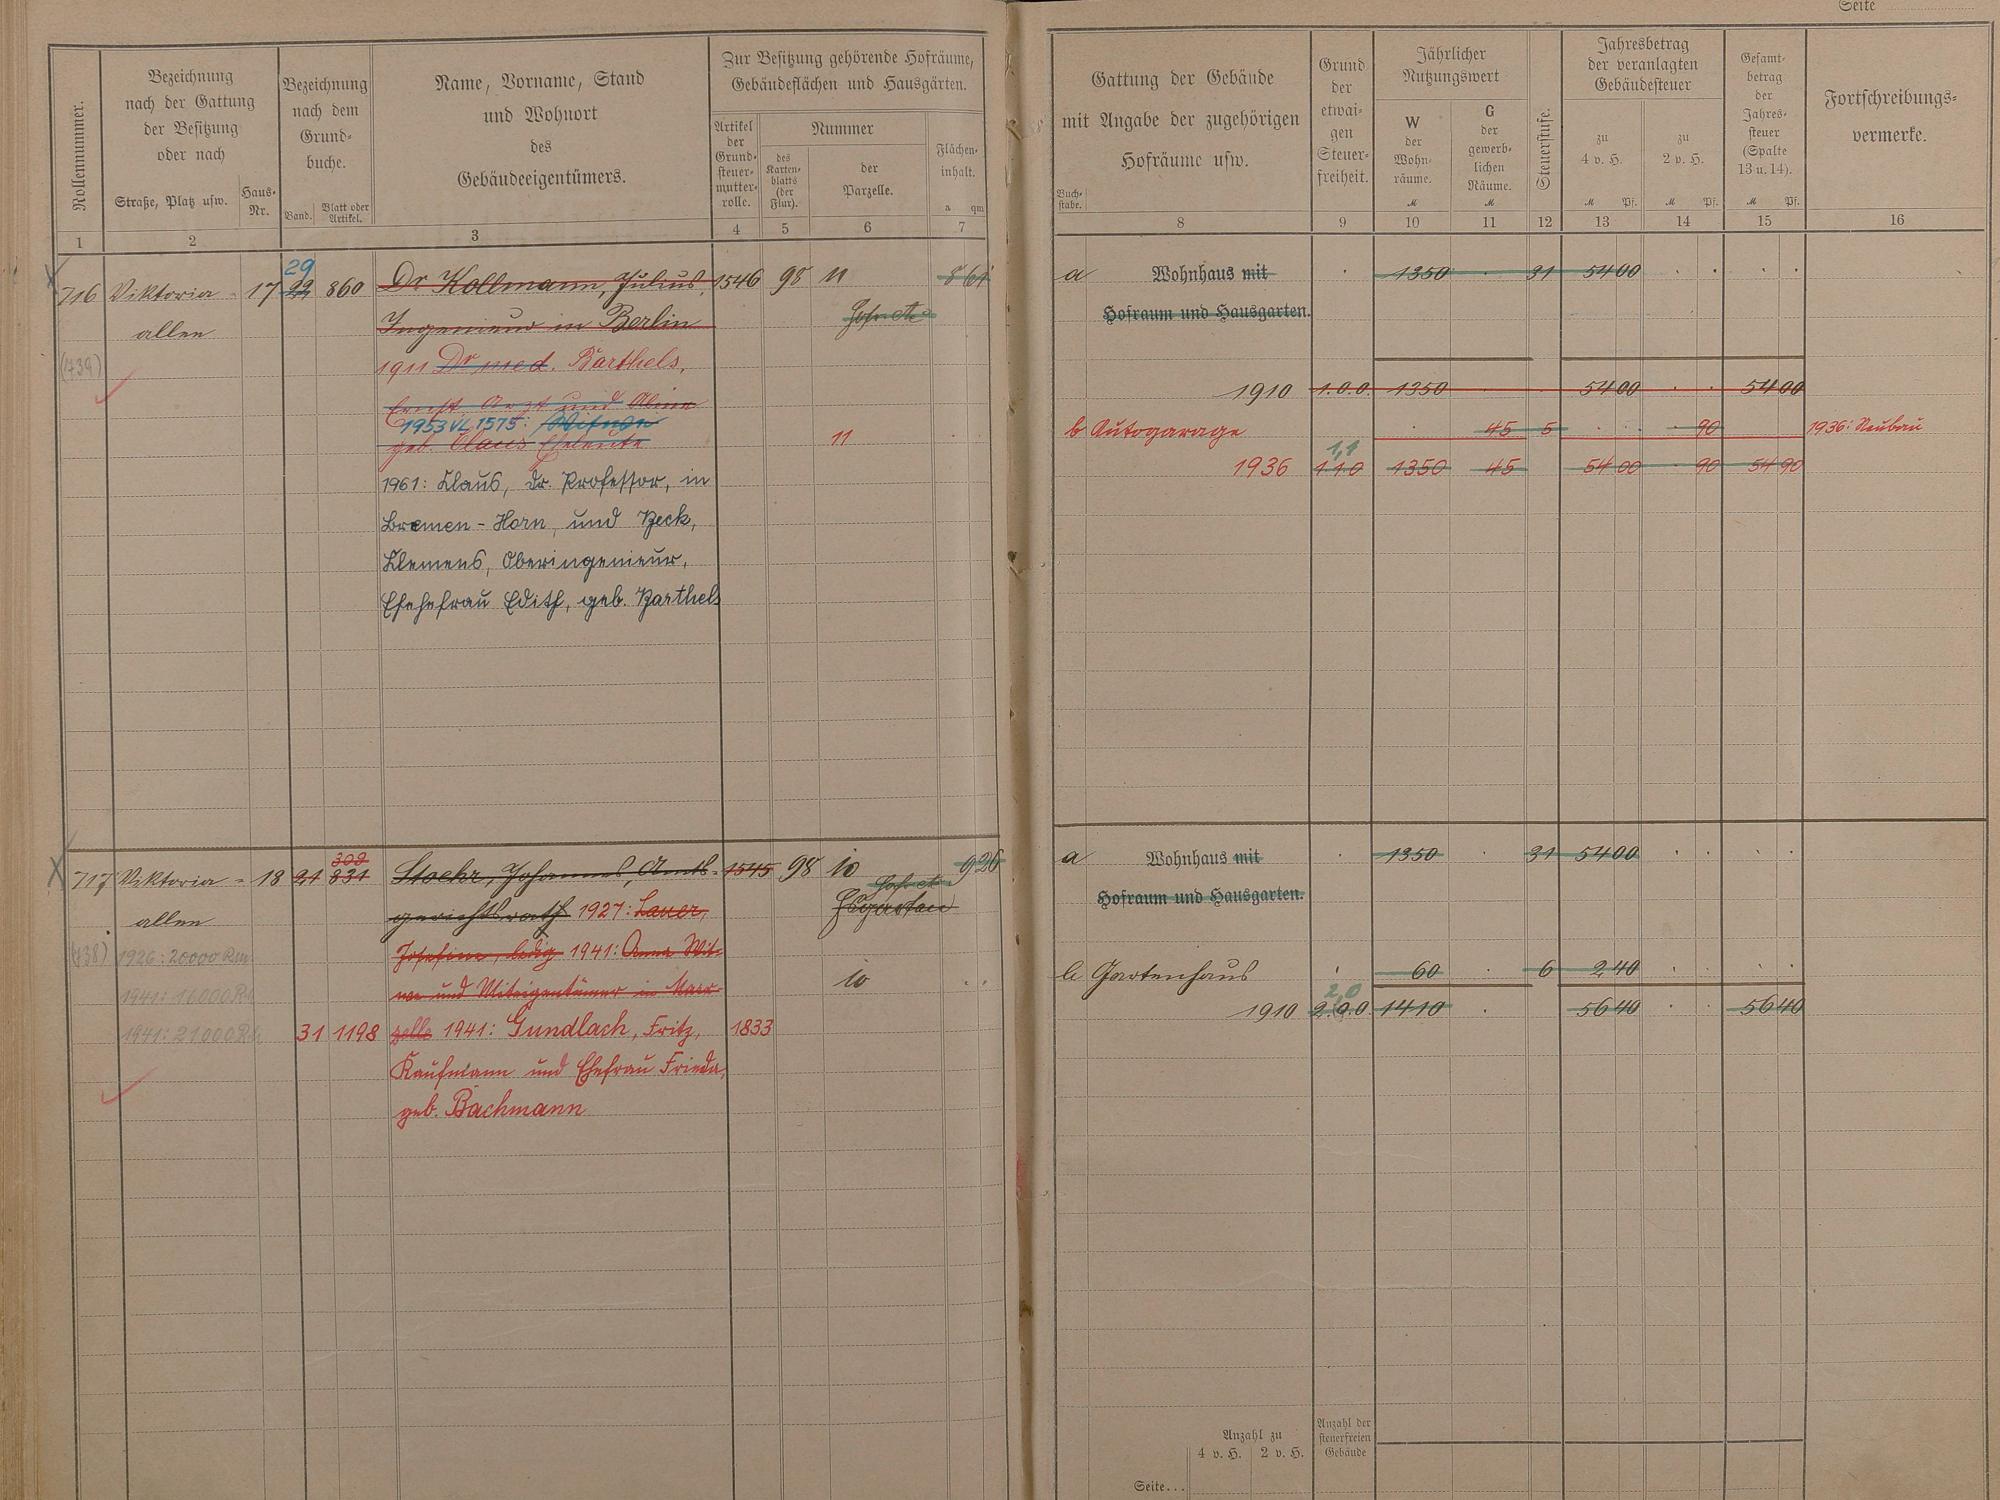 Seite
Rollennummer.
Bezeichnung
nach der Gattung
der Besitzung
oder nach
Straße, Platz usw.
Haus-
Nr.
Bezeichnung
nach dem
Grund-
buche.
Band.
Blatt oder
Artikel.
Name, Vorname, Stand
und Wohnort
des
Gebäudeeigentümers.
Zur Besitzung gehörende Hofräume,
Gebäudeflächen und Hausgärten.
Artikel
der
Grund-
steuer-
mutter-
rolle.
Nummer
des
Karten-
blatts
(der
Flur).
der
Parzelle.
Flächen-
inhalt.
a qm
1 2 3 4 5 6 7
Gattung der Gebäude
mit Angabe der zugehörigen
Hofräume usw.
Buch-
stabe.
Grund
der
etwai-
gen
Steuer-
freiheit.
Jährlicher
Nutzungswert
W
der
Wohn-
räume.
M
G
der
gewerb-
lichen
Räume.
M
Steuerstufe.
Jahresbetrag
der veranlagten
Gebäudesteuer
zu
4 v. H.
M Pf.
zu
2 v. H.
M Pf.
Gesamt-
betrag
der
Jahres-
steuer
(Spalte
13 u. 14).
M Pf.
Fortschreibungs-
vermerke.
8 9 10 11 12 13 14 15 16
29
716 Viktoria- 17 22 860 Dr Kollmann, Julius, 1546 98 11 8 61
allen Ingenieur in Berlin Hofr. etc
(739) 1911 Dr med. Barthels,
Ernst, Arzt und Aline
1953 VL 1575: Witwe
geb. Claus Eheleute 11
1961: Claus, Dr. Professor, in
Bremen-Horn, und Beck,
Klemens, Oberingenieur,
Ehehefrau Edith, geb. Barthels
a Wohnhaus mit 1350 31 54 00
Hofraum und Hausgarten.
1910 1.0.0. 1350 54 00 54 00
b Autogarage 45 5 90 1936: Neubau
1,1
1936 1 1 0 1350 45 54 00 90 54 90
302
717 Viktoria- 18 21 831 Stoehr, Johannes, Amts- 1545 98 10 9 26
allen gerichtsrath 1927: Lauer, Hofr. etc
Hsgarten
(738) 1926: 20000 Rm Josefine, ledig 1941: Anna Wit-
1941: 16000 Rm we und Miteigentümer in Marx- 10
1941: 21000 Rm 31 1198 zelle 1941: Gundlach, Fritz, 1833
Kaufmann und Ehefrau Frieda,
geb. Bachmann
a Wohnhaus mit 1350 31 54 00
Hofraum und Hausgarten.
b Gartenhaus 60 6 2 40
2,0
1910 2.0.0. 1410 56 40 56 40
Anzahl zu
4 v. H. 2 v. H.
Anzahl der
steuerfreien
Gebäude
Seite...